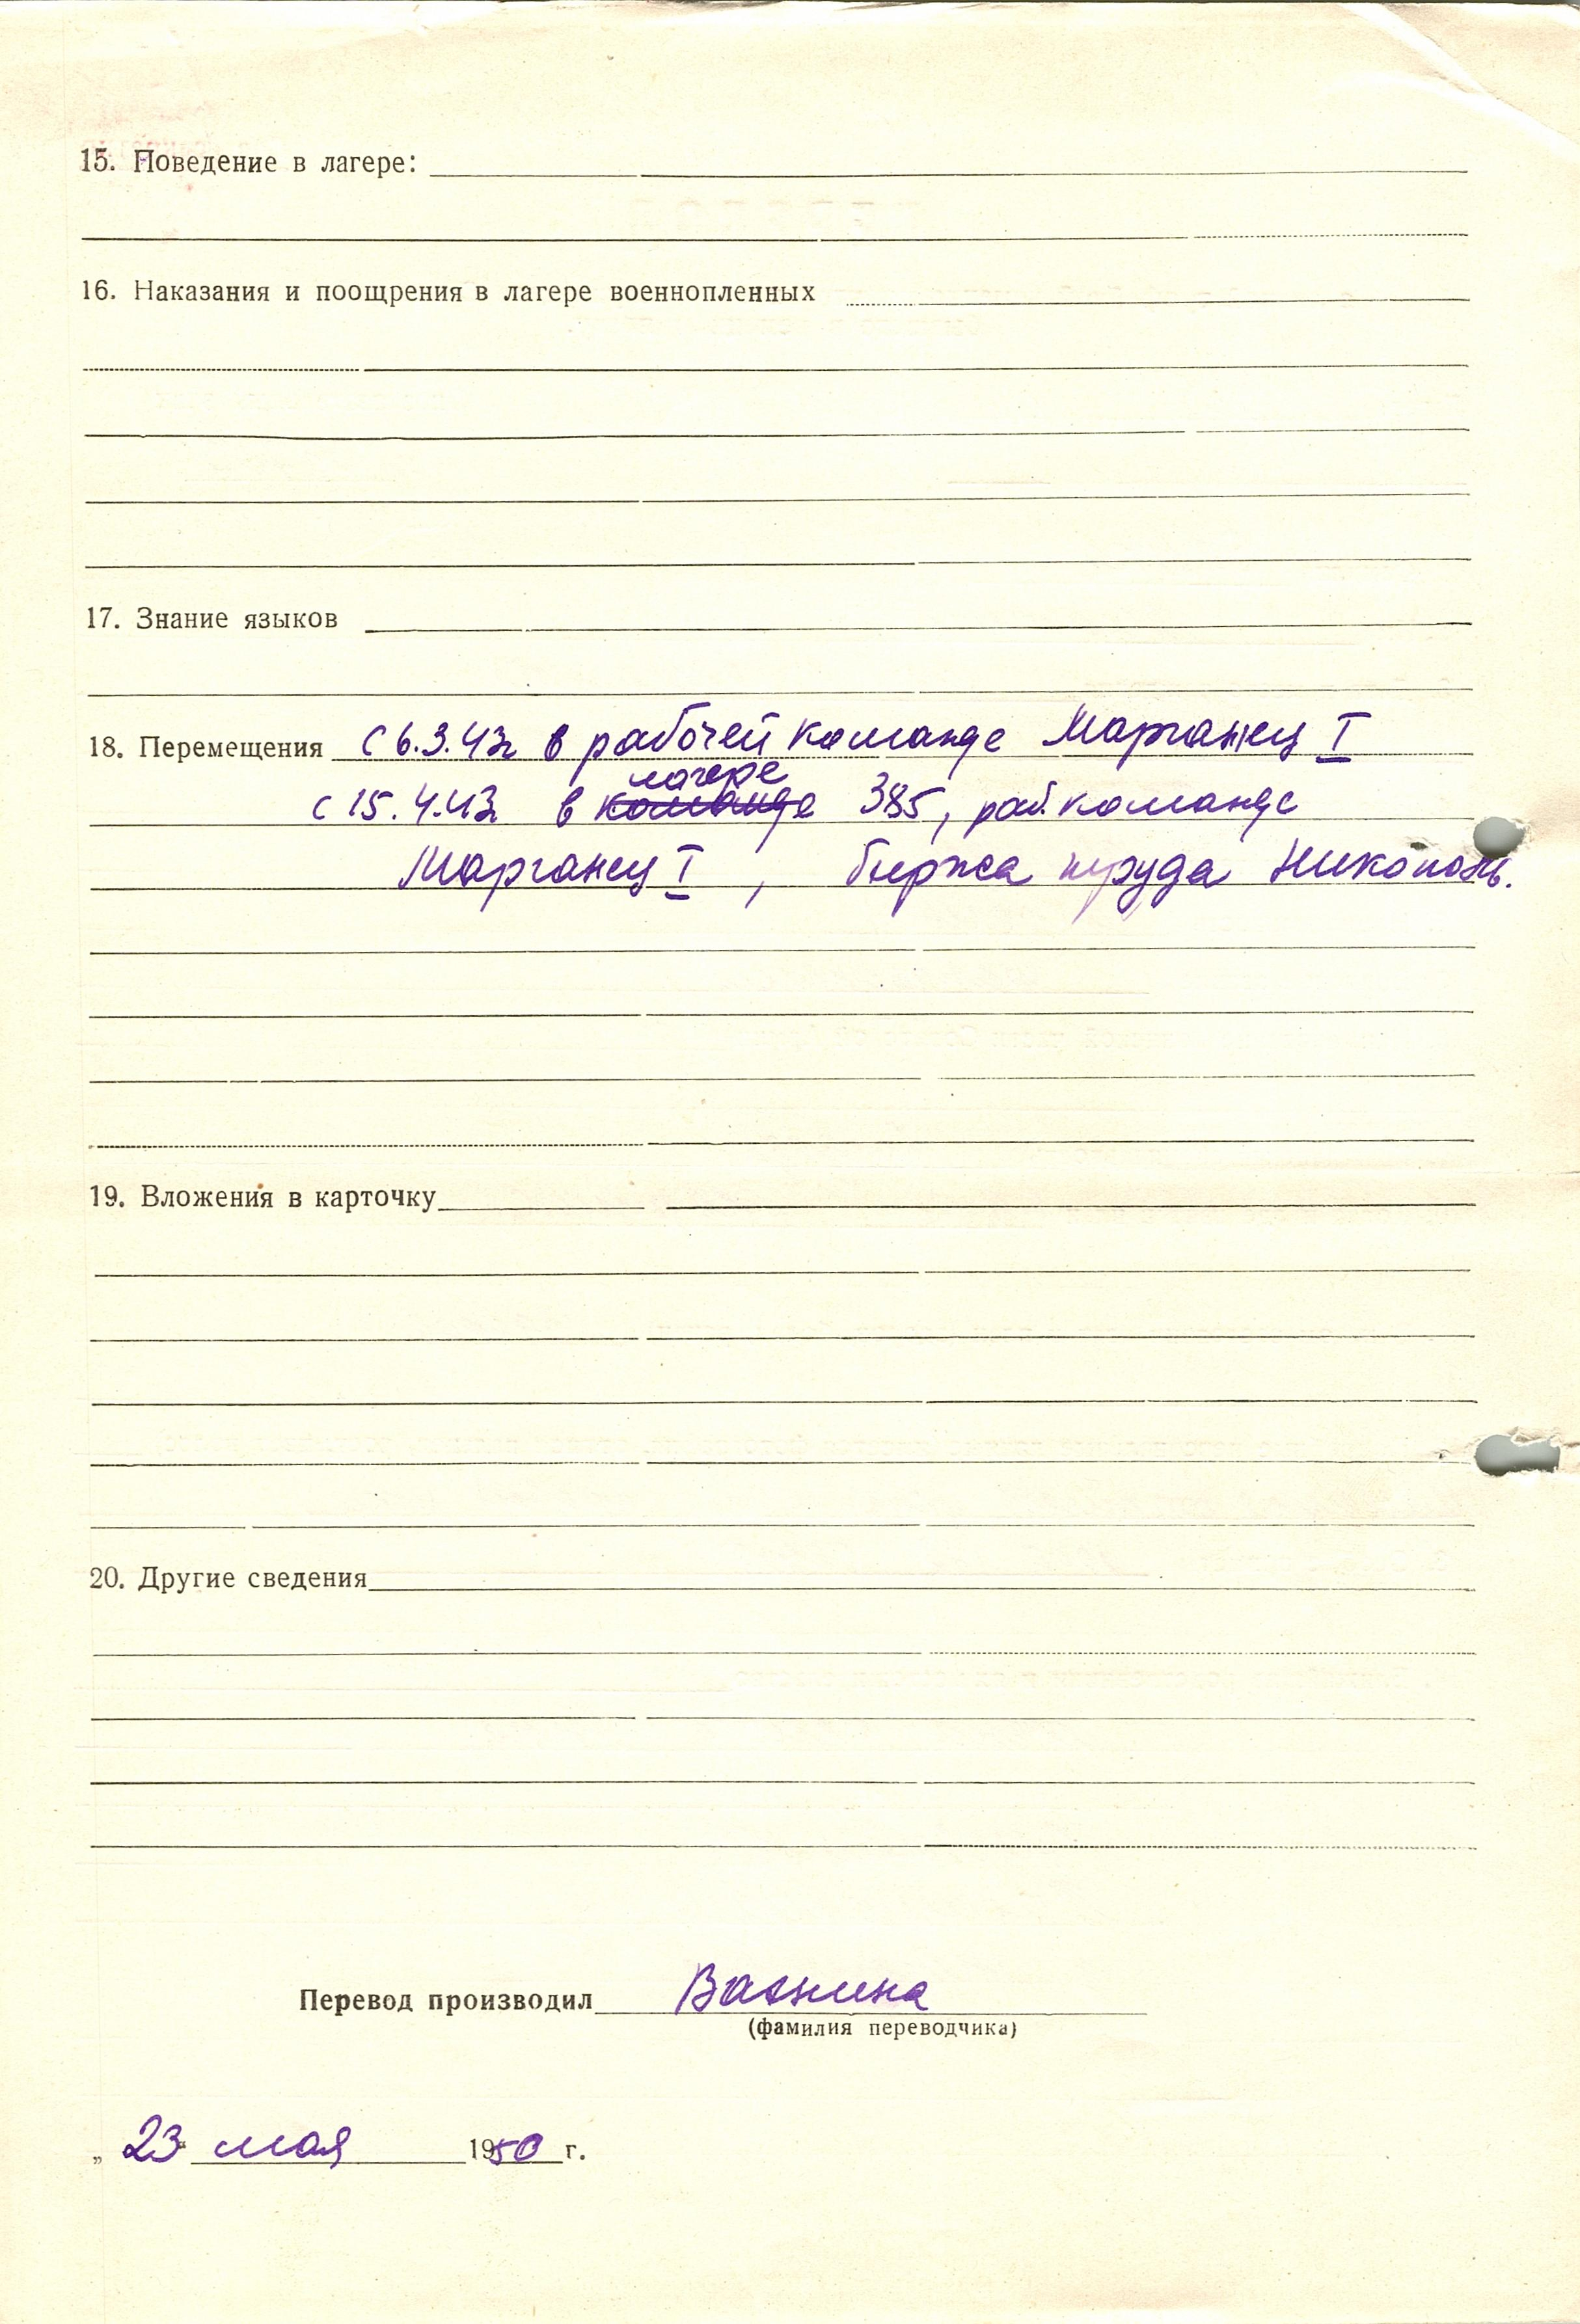 15. Поведение в лагере:
16. Наказания и поощрения в лагере военнопленных
17. Знание языков
18. Перемещения с 6.3.43г в рабочей команде Марганец I
лагере
с 15.4.43 в команде 385, раб. команде
Марганец I, биржа труда Никополь.
19. Вложения в карточку
20. Другие сведения
Перевод производил
(фамилия переводчика)
„ 23 мая 1950 г.